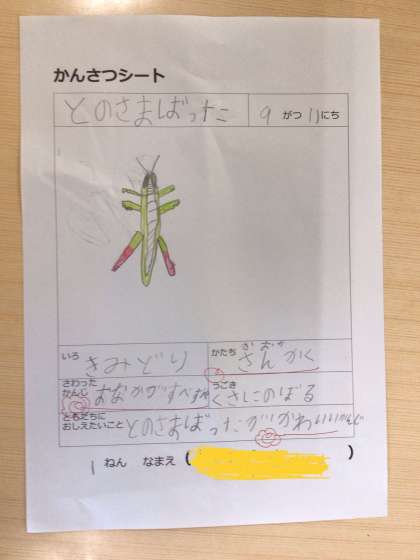 かんさつシート
とのさまばった 9がつ11にち
いろ きみどり かたち さんかく
さわったかんじ おなかがすべすべ うごき くさにのぼる
ともだちにおしえたいこと とのさまばったがかわいい
1ねん なまえ ( )